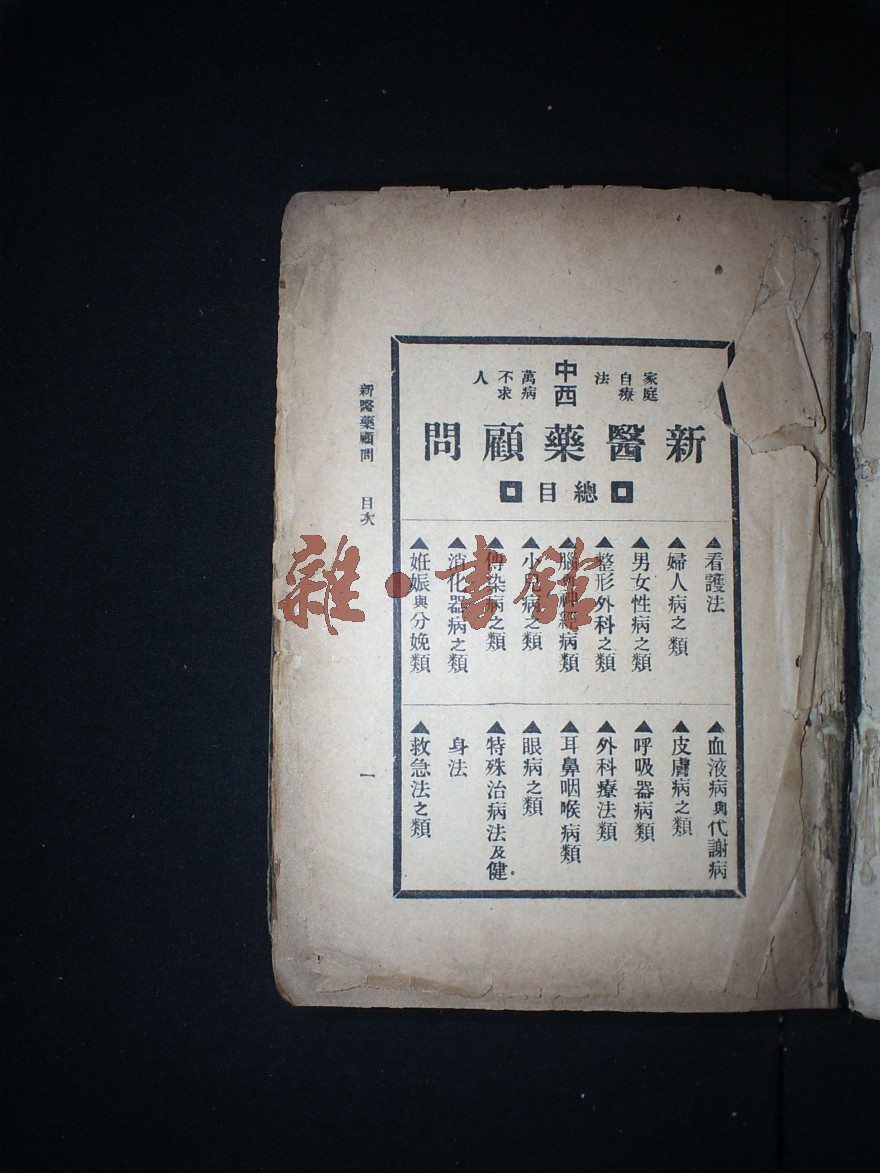 家庭自療法
中西
萬病不求人
新醫藥顧問
總目
▲看護法
▲婦人病之類
▲男女性病之類
▲整形外科之類
▲腦與神經病類
▲小兒病之類
▲傳染病之類
▲消化器病之類
▲姙娠與分娩類
▲血液病與代謝病
▲皮膚病之類
▲呼吸器病類
▲外科療法類
▲耳鼻咽喉病類
▲眼病之類
▲特殊治病法及健
身法
▲救急法之類
新醫藥顧問 目次
一
雜·書館